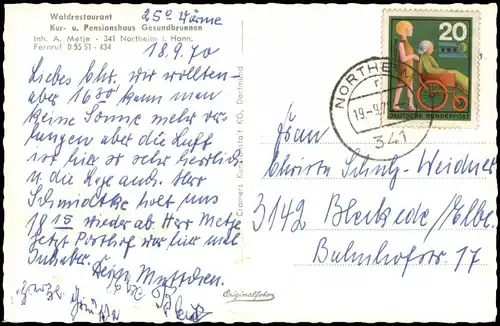 Waldrestaurant
Kur- u. Pensionshaus Gesundbrunnen
Inh. A. Metje - 341 Northeim i. Hann.
Fernruf 0 55 51 - 434
25° Wärme
18.9.70
Liebes Chr. wir wollten
aber 16 30 kann man
keine Sonne mehr ver-
langen aber die Luft
ist hier so sehr herrlich
u. die Lage auch. Herr
Schmidtke holt uns
18 15 wieder ab. Herr Metje
jetzt Posthof war hier mal
Inhaber.
Dein Muttchen
Cramers Kunstanstalt KG, Dortmund
Originalfotos
20
DEUTSCHE BUNDESPOST
NORTHEIM
19.-9.70
341
Frau
Christa Schulz-Weidner
3142 Bleckede/Elbe
Bahnhofstr. 17